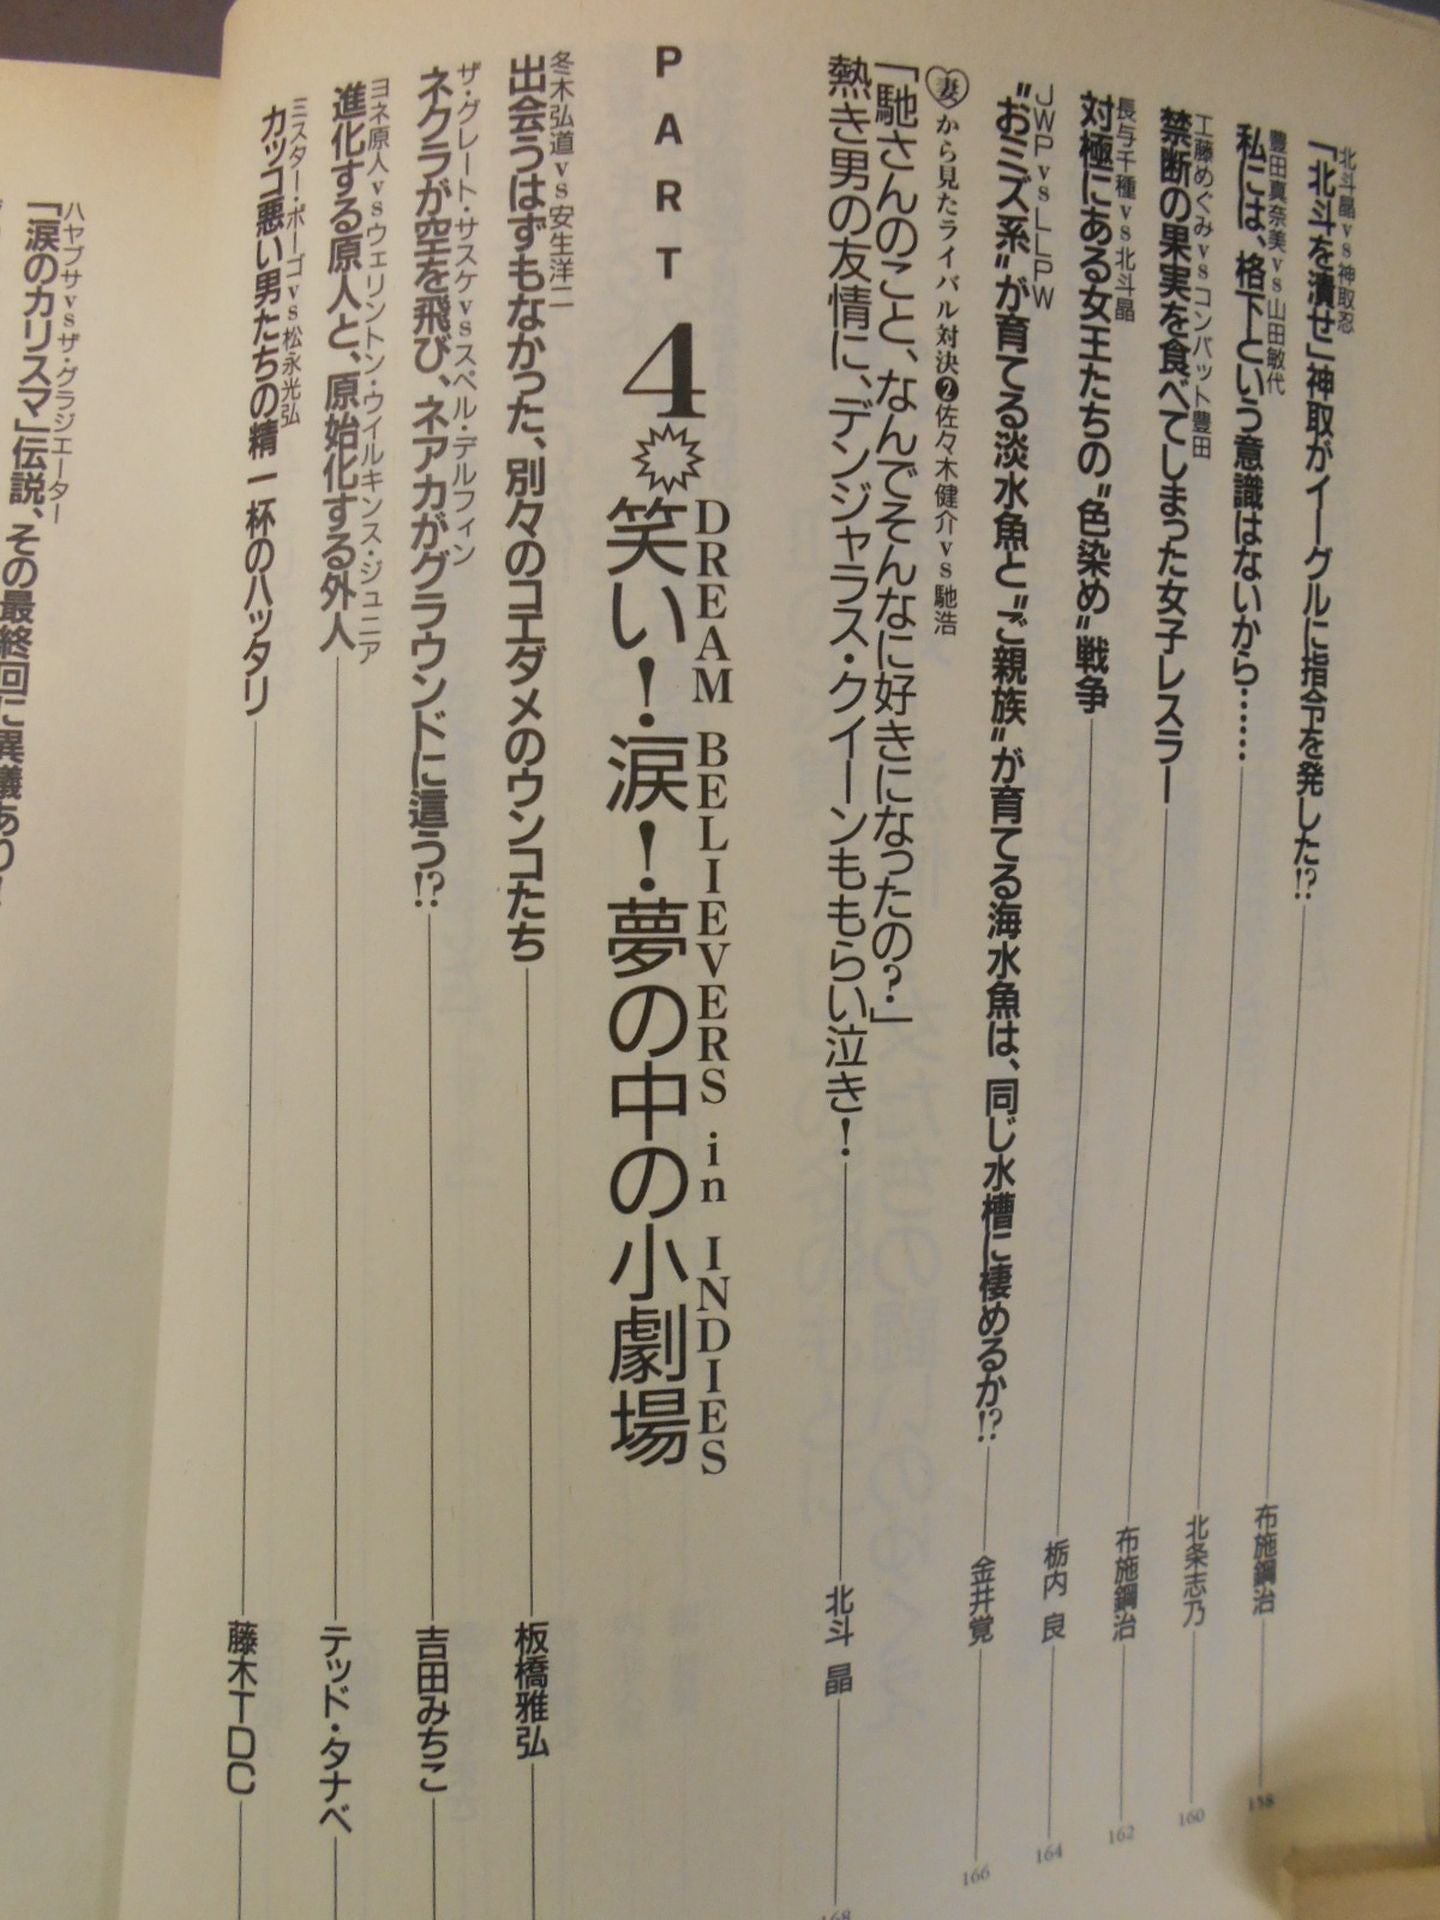 北斗晶vs神取忍
「北斗を潰せ」神取がイーグルに指令を発した!?
布施鋼治
158
豊田真奈美vs山田敏代
私には、格下という意識はないから……
北条志乃
160
工藤めぐみvsコンバット豊田
禁断の果実を食べてしまった女子レスラー
布施鋼治
162
長与千種vs北斗晶
対極にある女王たちの〝色染め〟戦争
栃内 良
164
JWPvsLLPW
〝おミズ系〟が育てる淡水魚と〝ご親族〟が育てる海水魚は、同じ水槽に棲めるか!?
金井覚
166
妻から見たライバル対決❷佐々木健介vs馳浩
「馳さんのこと、なんでそんなに好きになったの?」
熱き男の友情に、デンジャラス・クイーンももらい泣き!
北斗 晶
168
PART 4
DREAM BELIEVERS in INDIES
笑い!涙!夢の中の小劇場
冬木弘道vs安生洋二
出会うはずもなかった、別々のコエダメのウンコたち
板橋雅弘
ザ・グレート・サスケvsスペル・デルフィン
ネクラが空を飛び、ネアカがグラウンドに這う!?
吉田みちこ
ヨネ原人vsウェリントン・ウイルキンス・ジュニア
進化する原人と、原始化する外人
テッド・タナベ
ミスター・ポーゴvs松永光弘
カッコ悪い男たちの精一杯のハッタリ
藤木TDC
ハヤブサvsザ・グラジエーター
「涙のカリスマ」伝説、その最終回に異議あり!